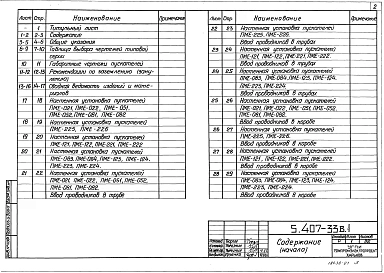 2
Лист Стр. Наименование Примечание
- 1 Титульный лист
1-2 2-3 Содержание
3-5 4-6 Общие указания
6-9 7-10 Таблица выбора чертежей типовой
серии
10 11 Габаритные чертежи пускателей
11-12 12-13 Рекомендации по заземлению (зану-
лению)
13-16 14-17 Сводная ведомость изделий и мате-
риалов
17 18 Настенная установка пускателей
ПМЕ-021, ПМЕ-022, ПМЕ-051,
ПМЕ-052, ПМЕ-081, ПМЕ-082
18 19 Настенная установка пускателей
ПМЕ-225, ПМЕ-226
19 20 Настенная установка пускателей
ПМЕ-121, ПМЕ-122, ПМЕ-221, ПМЕ-222
20 21 Настенная установка пускателей
ПМЕ-083, ПМЕ-084, ПМЕ-123, ПМЕ-124,
ПМЕ-223, ПМЕ-224
21 22 Настенная установка пускателей
ПМЕ-021, ПМЕ-022, ПМЕ-051, ПМЕ-052,
ПМЕ-081, ПМЕ-082.
Ввод проводников в трубах
Лист Стр. Наименование Примечание
22 23 Настенная установка пускателей
ПМЕ-225, ПМЕ-226.
Ввод проводников в трубах
23 24 Настенная установка пускателей
ПМЕ-121, ПМЕ-122, ПМЕ-221, ПМЕ-222.
Ввод проводников в трубах
24 25 Настенная установка пускателей
ПМЕ-083, ПМЕ-084, ПМЕ-123, ПМЕ-124,
ПМЕ-223, ПМЕ-224.
Ввод проводников в трубах
25 26 Настенная установка пускателей
ПМЕ-021, ПМЕ-022, ПМЕ-051, ПМЕ-052,
ПМЕ-081, ПМЕ-082.
Ввод проводников в коробе
26 27 Настенная установка пускателей
ПМЕ-225, ПМЕ-226.
Ввод проводников в коробе
27 28 Настенная установка пускателей
ПМЕ-121, ПМЕ-122, ПМЕ-221, ПМЕ-222.
Ввод проводников в коробе
28 29 Настенная установка пускателей
ПМЕ-083, ПМЕ-084, ПМЕ-123, ПМЕ-124,
ПМЕ-223, ПМЕ-224.
5.407-33В.1
Содержание
(начало)